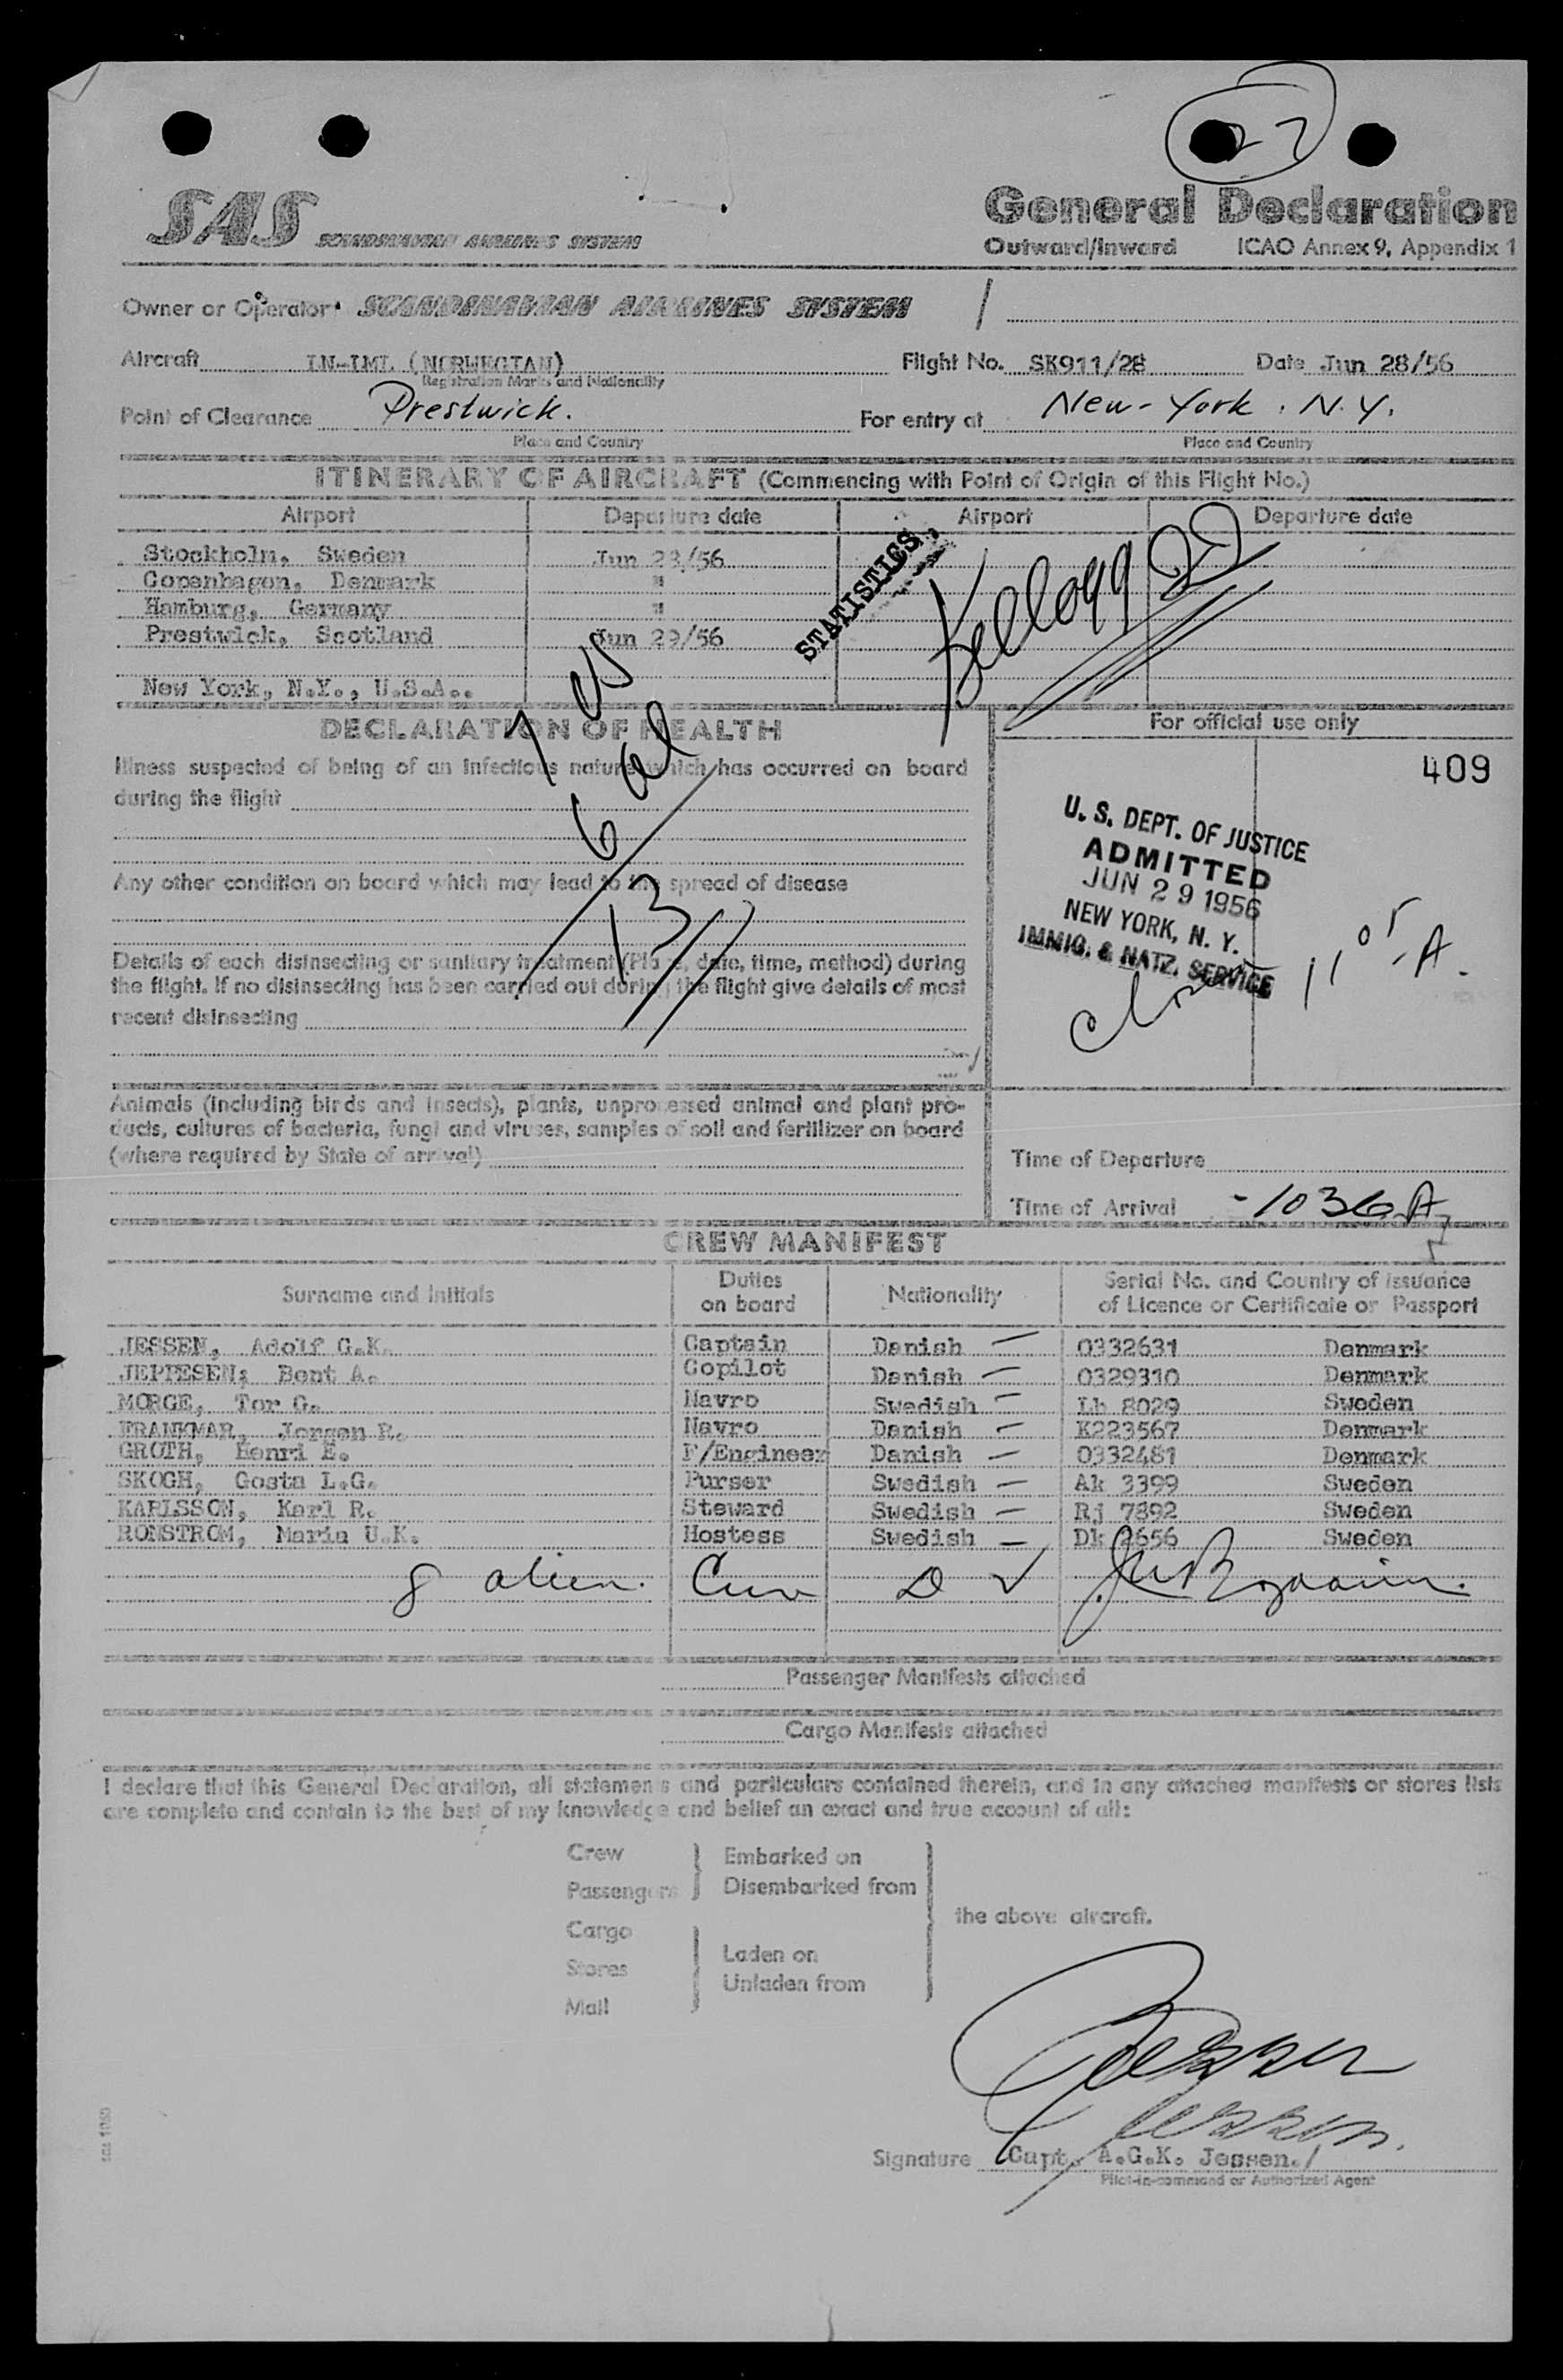 27
SAS SCANDINAVIAN AIRLINES SYSTEM
General Declaration
Outward/Inward ICAO Annex 9, Appendix 1
Owner or Operator: SCANDINAVIAN AIRLINES SYSTEM
Aircraft LN-LML (NORWEGIAN) Flight No. SK911/28 Date Jun 28/56
Registration Marks and Nationality
Point of Clearance Prestwick. For entry at New-York. N.Y.
Place and Country Place and Country
ITINERARY OF AIRCRAFT (Commencing with Point of Origin of this Flight No.)
Airport Departure date Airport Departure date
Stockholm, Sweden Jun 28/56
Copenhagen, Denmark "
Hamburg, Germany "
Prestwick, Scotland Jun 29/56
New York, N.Y., U.S.A..
STATISTICS
Kellogg
7 us
6 al
13
DECLARATION OF HEALTH
For official use only
Illness suspected of being of an infectious nature which has occurred on board
during the flight
409
U. S. DEPT. OF JUSTICE
ADMITTED
JUN 29 1956
NEW YORK, N. Y.
IMMIG. & NATZ. SERVICE
11 05 A.
Any other condition on board which may lead to the spread of disease
Details of each disinsecting or sanitary treatment (Place, date, time, method) during
the flight. If no disinsecting has been carried out during the flight give details of most
recent disinsecting
Animals (including birds and insects), plants, unprocessed animal and plant pro-
ducts, cultures of bacteria, fungi and viruses, samples of soil and fertilizer on board
(where required by State of arrival)
Time of Departure
Time of Arrival -1036A
CREW MANIFEST
Surname and Initials Duties on board Nationality Serial No. and Country of Issuance of Licence or Certificate or Passport
JESSEN, Adolf G.K. Captain Danish 0332631 Denmark
JEPPESEN; Bent A. Copilot Danish 0329310 Denmark
MORGE, Tor G. Navro Swedish Lh 8029 Sweden
FRANKMAR, Jorgen R. Navro Danish K223567 Denmark
GROTH, Henri E. F/Engineer Danish 0332481 Denmark
SKOGH, Gosta L.G. Purser Swedish Ak 3399 Sweden
KARLSSON, Karl R. Steward Swedish Rj 7892 Sweden
RONSTROM, Maria U.K. Hostess Swedish Dk 2656 Sweden
8 alien. Crew D
Passenger Manifests attached
Cargo Manifests attached
I declare that this General Declaration, all statements and particulars contained therein, and in any attached manifests or stores lists
are complete and contain to the best of my knowledge and belief an exact and true account of all:
Crew
Passengers
Embarked on
Disembarked from
Cargo
Stores
Mail
Laden on
Unladen from
the above aircraft.
Jessen
Jessen.
Signature Capt. A.G.K. Jessen./
Pilot-in-command or Authorized Agent